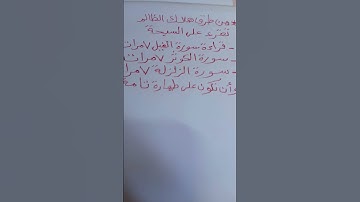 * من طرق هلاك الظالم
تقرء على السبحة
- قراءة سورة الفيل ٧ مرات
- سورة الكوثر ٧ مرات
- سورة الزلزلة ٧ مرا
وأن تكون على طهارة تامة